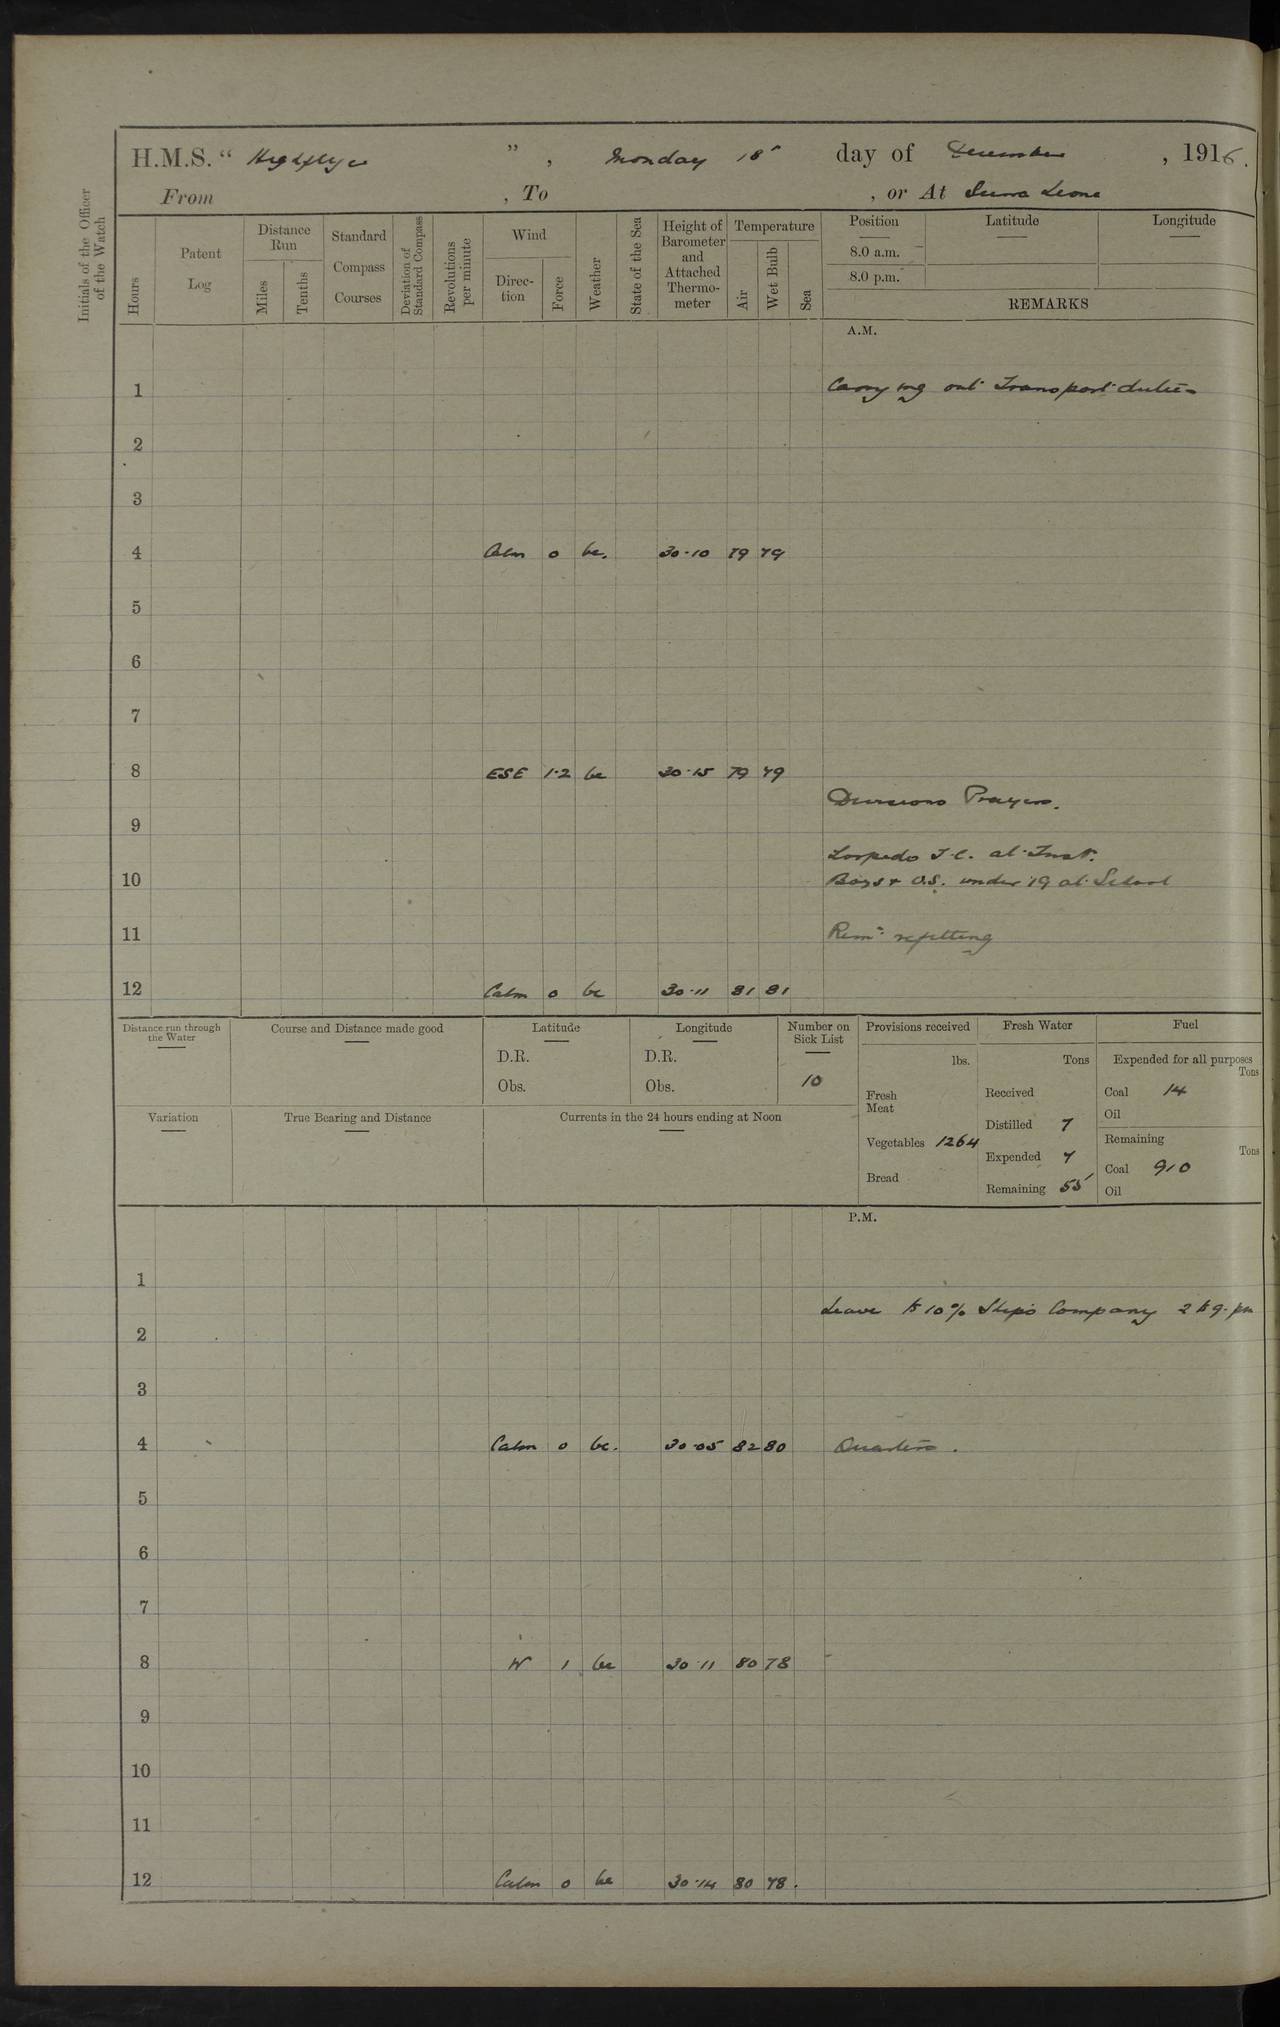 H.M.S. “ Highflyer ” , Monday 18th day of December , 1916.
From , To , or At Sierra Leone
Initials of the Officer of the Watch
Hours
Patent Log
Distance Run
Miles
Tenths
Standard Compass Courses
Deviation of Standard Compass
Revolutions per minute
Wind
Direction
Force
Weather
State of the Sea
Height of Barometer and Attached Thermometer
Temperature
Air
Wet Bulb
Sea
Position Latitude Longitude
8.0 a.m.
8.0 p.m.
REMARKS
A.M.
1 Carrying out Transport duties
2
3
4 Calm 0 bc. 30.10 79 79
5
6
7
8 ESE 1.2 bc 30.15 79 79
Divisions Prayers.
9
Torpedo T.C. at Inst.
10 Boys & O.S. under 19 at School
11 Remr refitting
12 Calm 0 bc 30.11 81 81
Distance run through the Water
Course and Distance made good
Latitude
D.R.
Obs.
Longitude
D.R.
Obs.
Number on Sick List
10
Variation
True Bearing and Distance
Currents in the 24 hours ending at Noon
Provisions received
lbs.
Fresh Meat
Vegetables 1264
Bread
Fresh Water
Tons
Received
Distilled 7
Expended 7
Remaining 55
Fuel
Expended for all purposes
Tons
Coal 14
Oil
Remaining
Tons
Coal 910
Oil
P.M.
1
Leave to 10% Ships Company 2 to 9. pm
2
3
4 Calm 0 bc. 30.05 82 80 Quarters .
5
6
7
8 W 1 bc 30.11 80 78
9
10
11
12 Calm 0 bc 30.14 80 78.